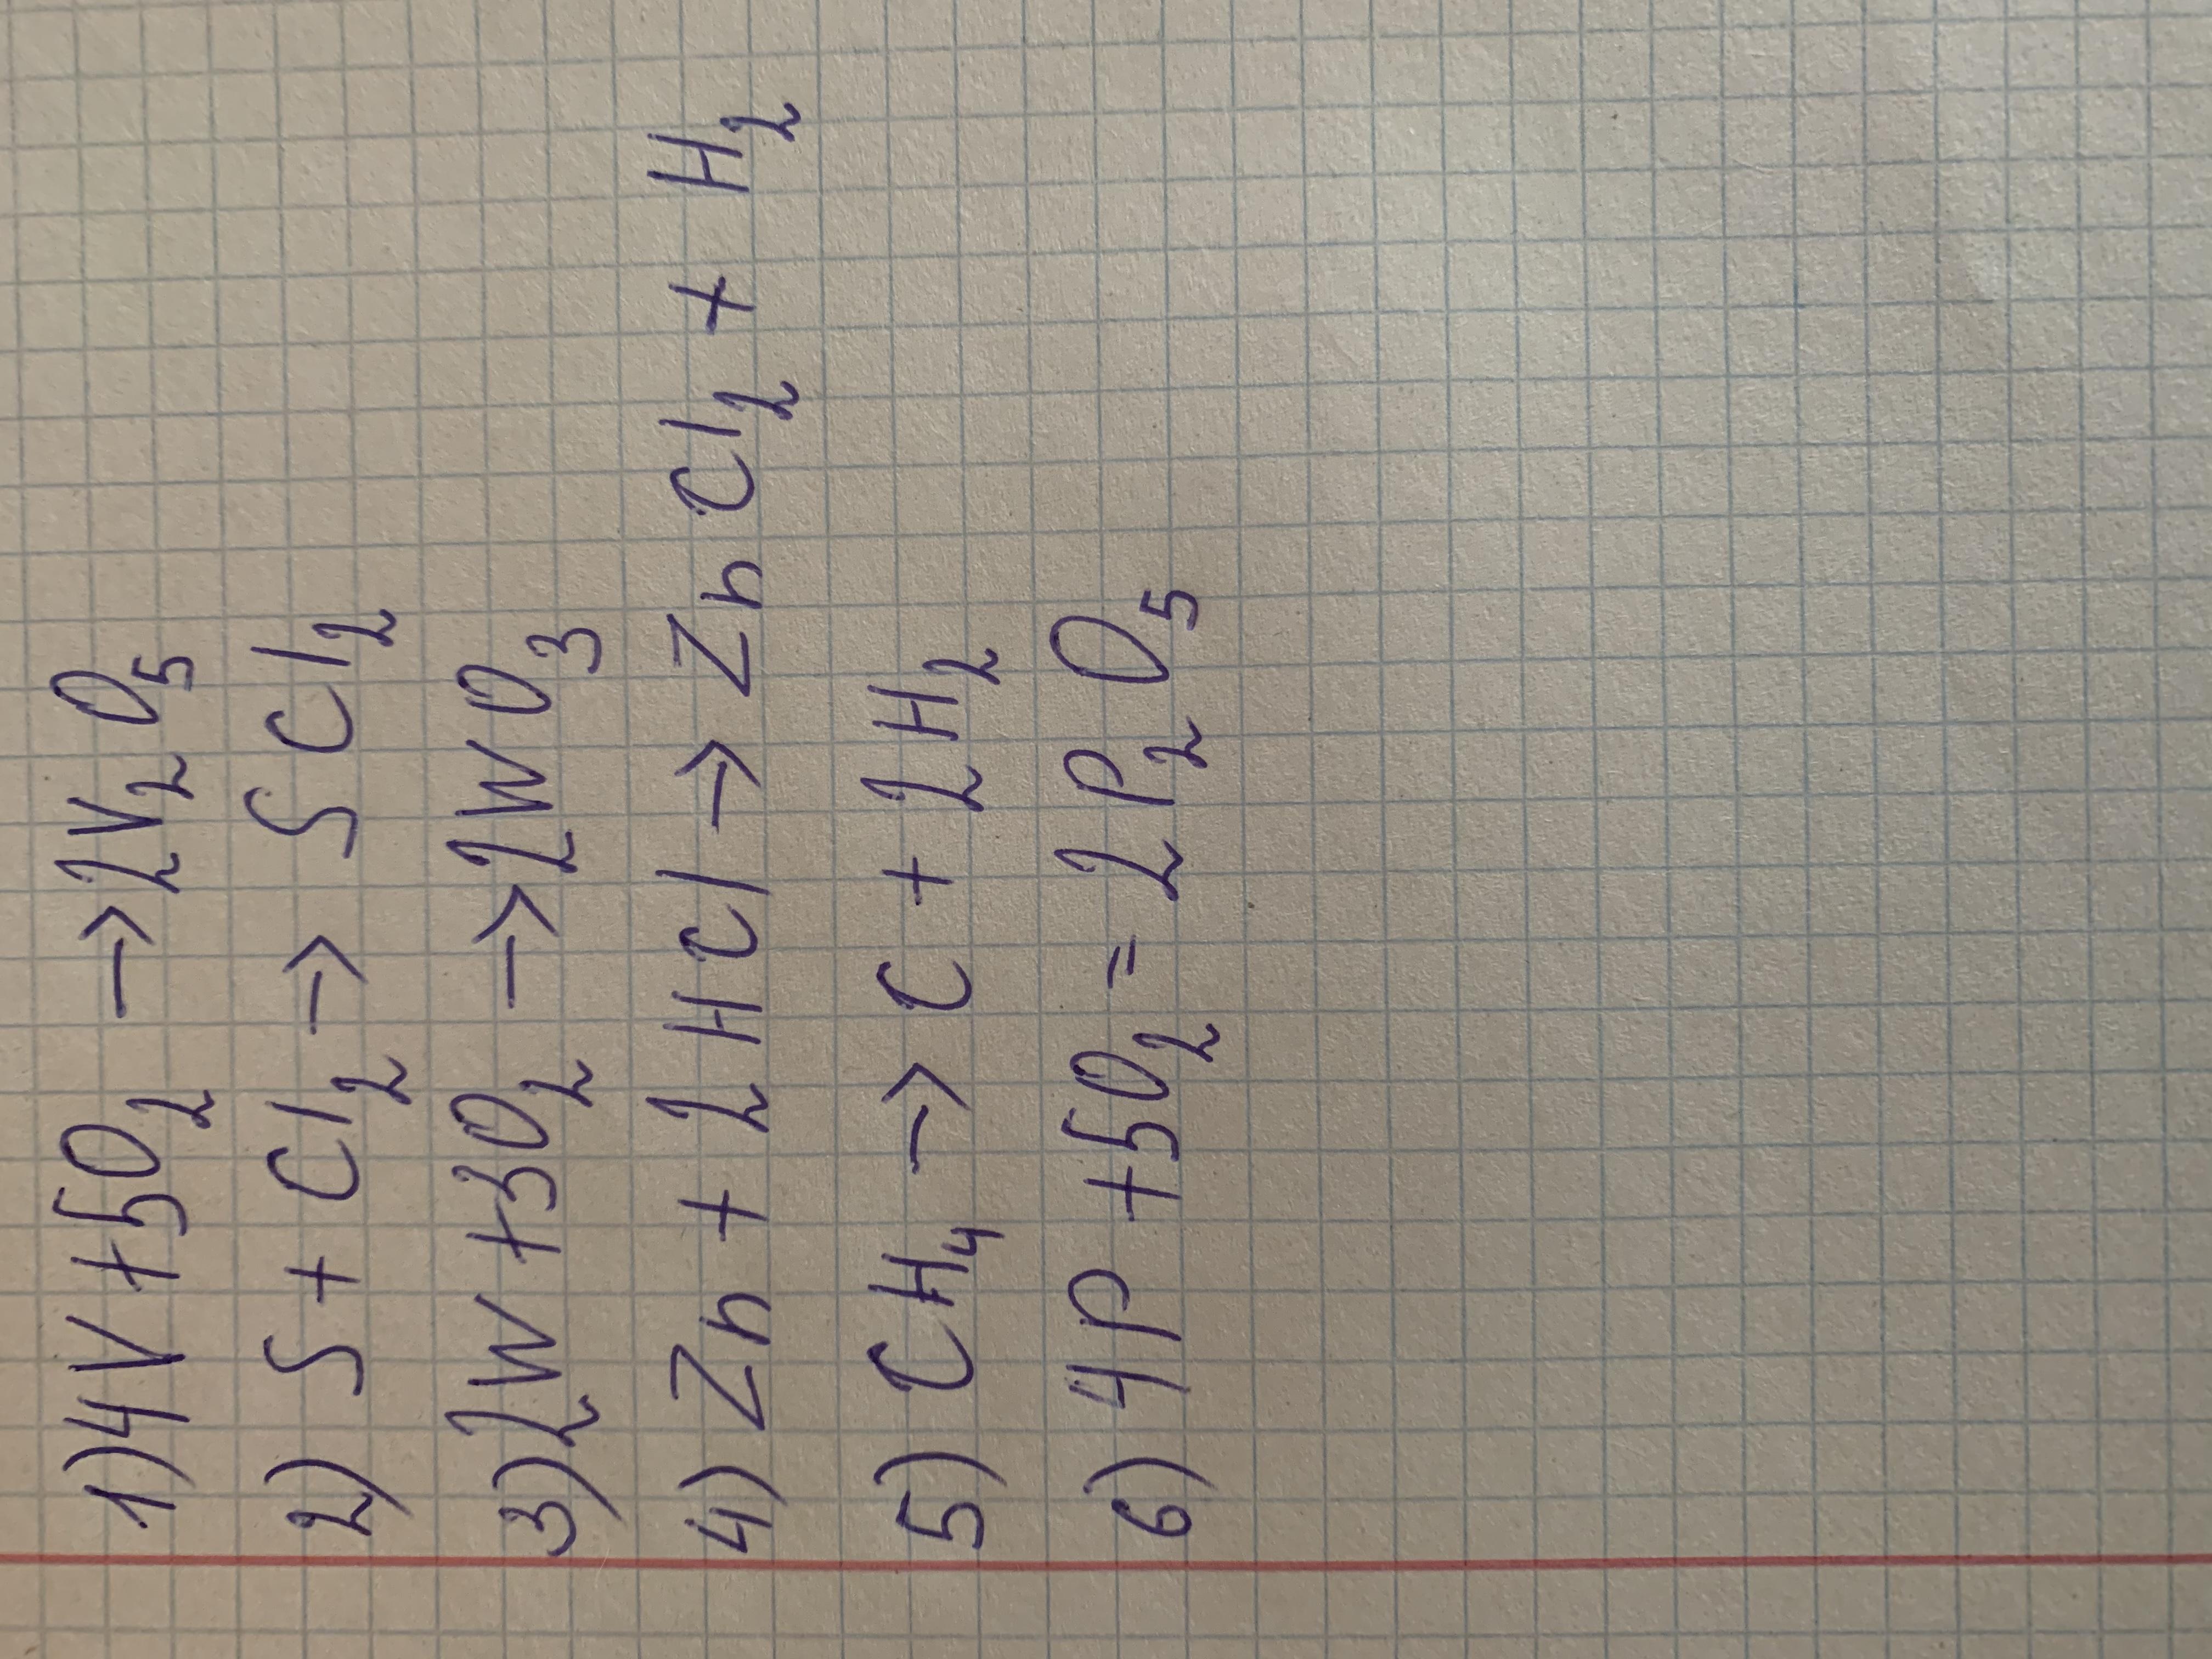 1) 4V + 5O₂ → 2V₂O₅
2) S + Cl₂ → SCl₂
3) 2W + 3O₂ → 2WO₃
4) Zn + 2HCl → ZnCl₂ + H₂
5) CH₄ → C + 2H₂
6) 4P + 5O₂ = 2P₂O₅